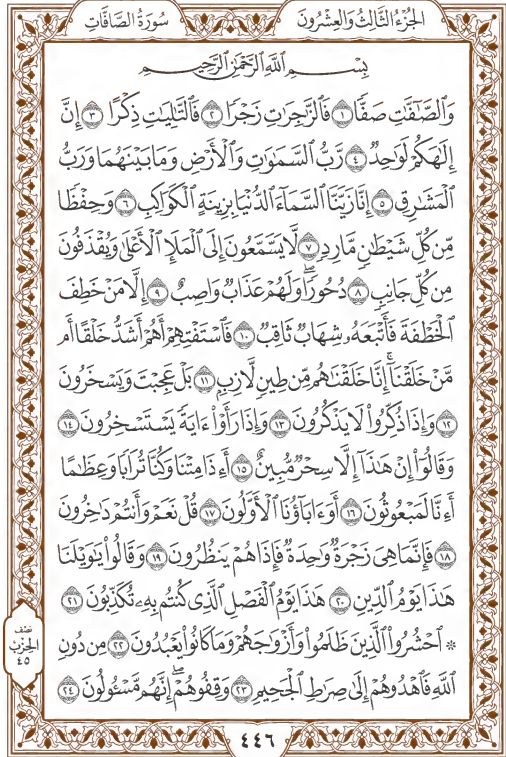 الجُزْءُ الثَّالِثُ وَالعِشْرُونَ
سُورَةُ الصَّافَّاتِ
بِسْمِ ٱللَّهِ ٱلرَّحْمَٰنِ ٱلرَّحِيمِ
وَٱلصَّٰٓفَّٰتِ صَفًّا ١ فَٱلزَّٰجِرَٰتِ زَجْرًا ٢ فَٱلتَّٰلِيَٰتِ ذِكْرًا ٣ إِنَّ
إِلَٰهَكُمْ لَوَٰحِدٌ ٤ رَّبُّ ٱلسَّمَٰوَٰتِ وَٱلْأَرْضِ وَمَا بَيْنَهُمَا وَرَبُّ
ٱلْمَشَٰرِقِ ٥ إِنَّا زَيَّنَّا ٱلسَّمَآءَ ٱلدُّنْيَا بِزِينَةٍ ٱلْكَوَاكِبِ ٦ وَحِفْظًا
مِّن كُلِّ شَيْطَٰنٍ مَّارِدٍ ٧ لَّا يَسَّمَّعُونَ إِلَى ٱلْمَلَإِ ٱلْأَعْلَىٰ وَيُقْذَفُونَ
مِن كُلِّ جَانِبٍ ٨ دُحُورًاۖ وَلَهُمْ عَذَابٌ وَاصِبٌ ٩ إِلَّا مَنْ خَطِفَ
ٱلْخَطْفَةَ فَأَتْبَعَهُۥ شِهَابٌ ثَاقِبٌ ١٠ فَٱسْتَفْتِهِمْ أَهُمْ أَشَدُّ خَلْقًا أَم
مَّنْ خَلَقْنَآۚ إِنَّا خَلَقْنَٰهُم مِّن طِينٍ لَّازِبٍ ١١ بَلْ عَجِبْتَ وَيَسْخَرُونَ
١٢ وَإِذَا ذُكِّرُوا۟ لَا يَذْكُرُونَ ١٣ وَإِذَا رَأَوْا۟ ءَايَةً يَسْتَسْخِرُونَ ١٤
وَقَالُوٓا۟ إِنْ هَٰذَآ إِلَّا سِحْرٌ مُّبِينٌ ١٥ أَءِذَا مِتْنَا وَكُنَّا تُرَابًا وَعِظَٰمًا
أَءِنَّا لَمَبْعُوثُونَ ١٦ أَوَءَابَآؤُنَا ٱلْأَوَّلُونَ ١٧ قُلْ نَعَمْ وَأَنتُمْ دَٰخِرُونَ
١٨ فَإِنَّمَا هِيَ زَجْرَةٌ وَٰحِدَةٌ فَإِذَا هُمْ يَنظُرُونَ ١٩ وَقَالُوا۟ يَٰوَيْلَنَا
هَٰذَا يَوْمُ ٱلدِّينِ ٢٠ هَٰذَا يَوْمُ ٱلْفَصْلِ ٱلَّذِى كُنتُم بِهِۦ تُكَذِّبُونَ ٢١
۞ ٱحْشُرُوا۟ ٱلَّذِينَ ظَلَمُوا۟ وَأَزْوَٰجَهُمْ وَمَا كَانُوا۟ يَعْبُدُونَ ٢٢ مِن دُونِ
ٱللَّهِ فَٱهْدُوهُمْ إِلَىٰ صِرَٰطِ ٱلْجَحِيمِ ٢٣ وَقِفُوهُمْۖ إِنَّهُم مَّسْـُٔولُونَ ٢٤
نصف
الحزب
٤٥
٤٤٦